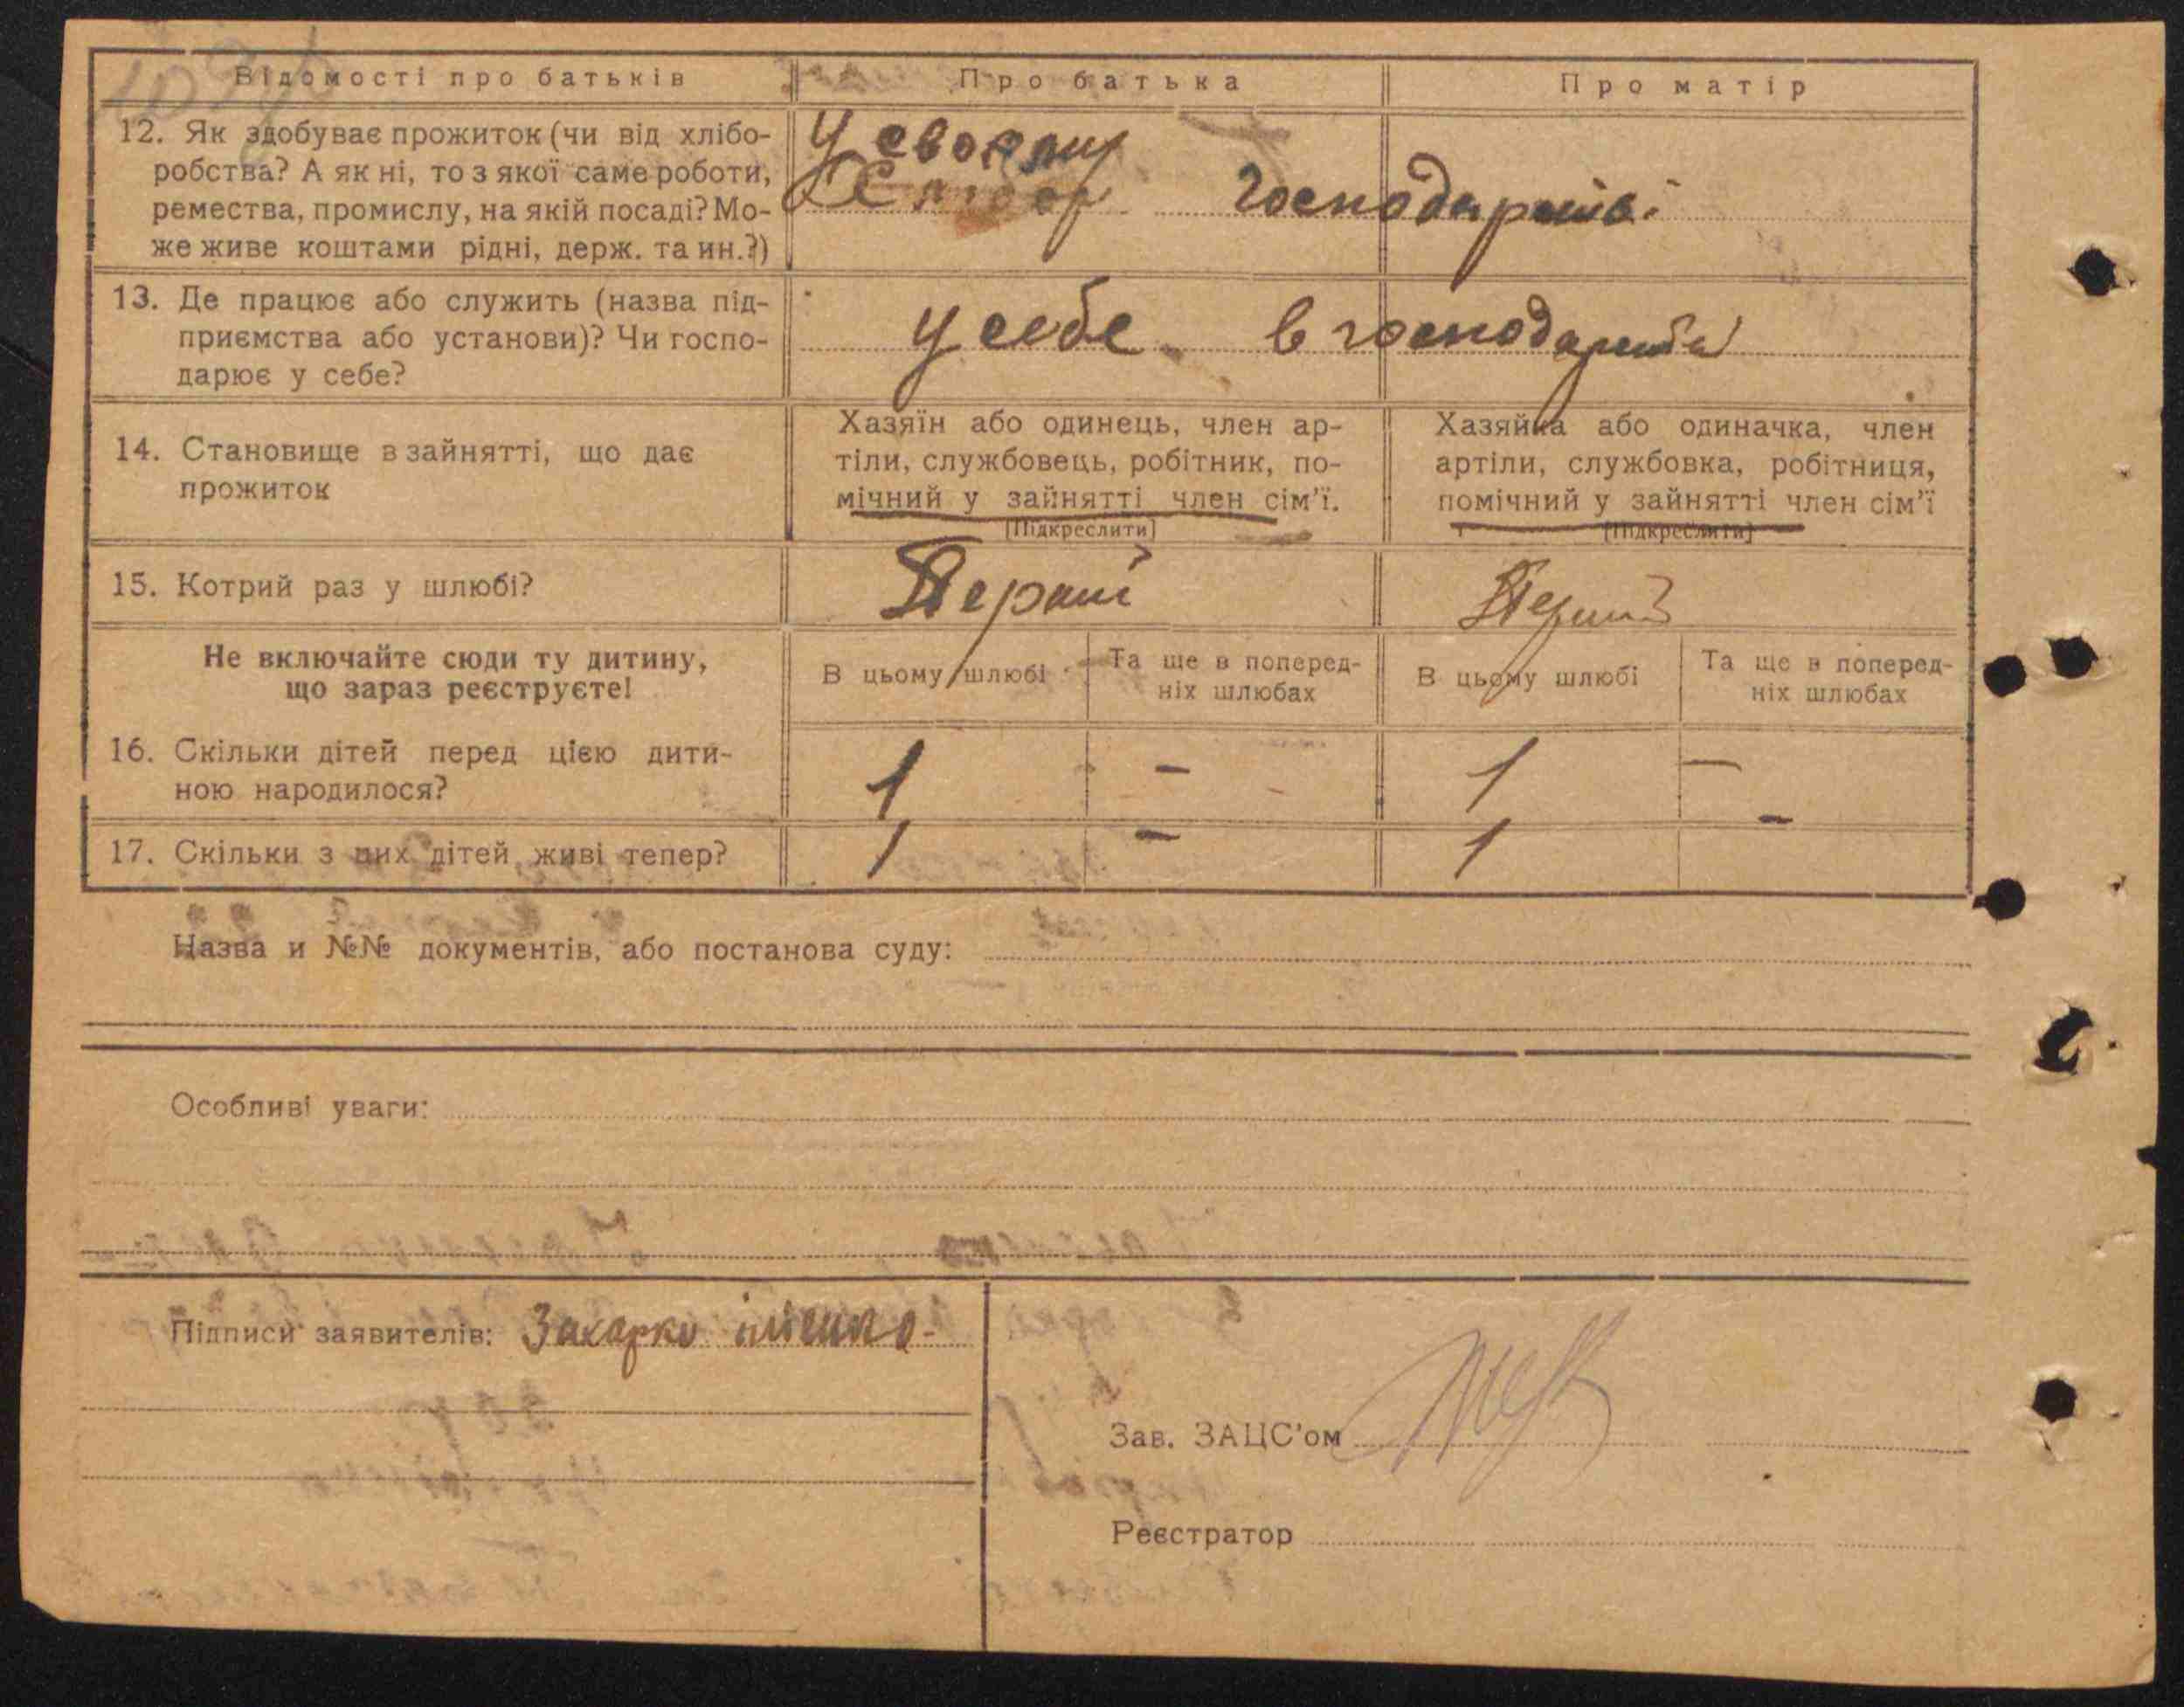 Відомості про батьків
Про батька
Про матір
12. Як здобуває прожиток (чи від хлібо-
робства? А як ні, то з якої саме роботи,
ремества, промислу, на якій посаді? Мо-
же живе коштами рідні, держ. та ин.?)
У своєму
Хлібор
господарстві
13. Де працює або служить (назва під-
приємства або установи)? Чи госпо-
дарює у себе?
у себе в господарстві
14. Становище в зайнятті, що дає
прожиток
Хазяїн або одинець, член ар-
тіли, службовець, робітник, по-
мічний у зайнятті член сім'ї.
[Підкреслити]
Хазяйка або одиначка, член
артіли, службовка, робітниця,
помічний у зайнятті член сім'ї
[Підкреслити]
15. Котрий раз у шлюбі?
Перший
Перший
Не включайте сюди ту дитину,
що зараз реєструєте!
В цьому шлюбі
Та ще в поперед-
ніх шлюбах
В цьому шлюбі
Та ще в поперед-
ніх шлюбах
16. Скільки дітей перед цією дити-
ною народилося?
1 - 1 -
17. Скільки з цих дітей живі тепер?
1 - 1 -
Назва и №№ документів, або постанова суду:
Особливі уваги:
Підписи заявителів: Захарко
Зав. ЗАЦС'ом
Реєстратор